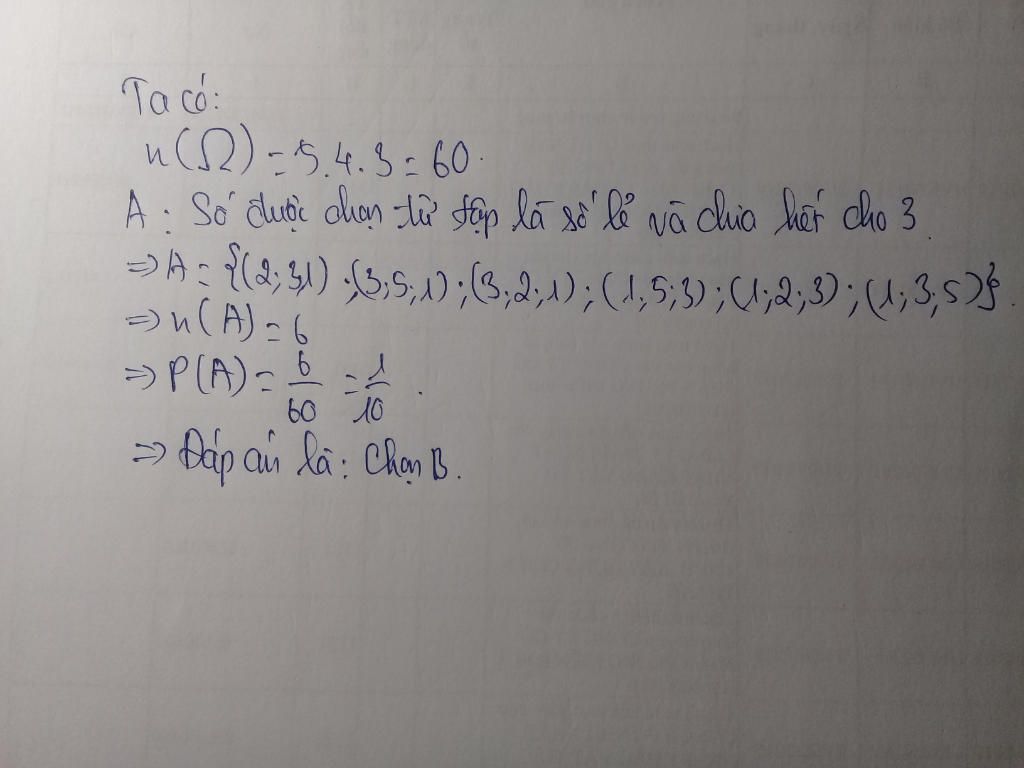 Ta có:
n(Ω) = 5.4.3 = 60.
A: Số được chọn từ tập là số lẻ và chia hết cho 3.
=> A = {(2; 3,1) ; (3; 5; 1) ; (3; 2; 1) ; (1, 5; 3) ; (1; 2; 3) ; (1; 3; 5)}.
=> n(A) = 6
=> P(A) = 6/60 = 1/10.
=> Đáp án là: Chọn B.